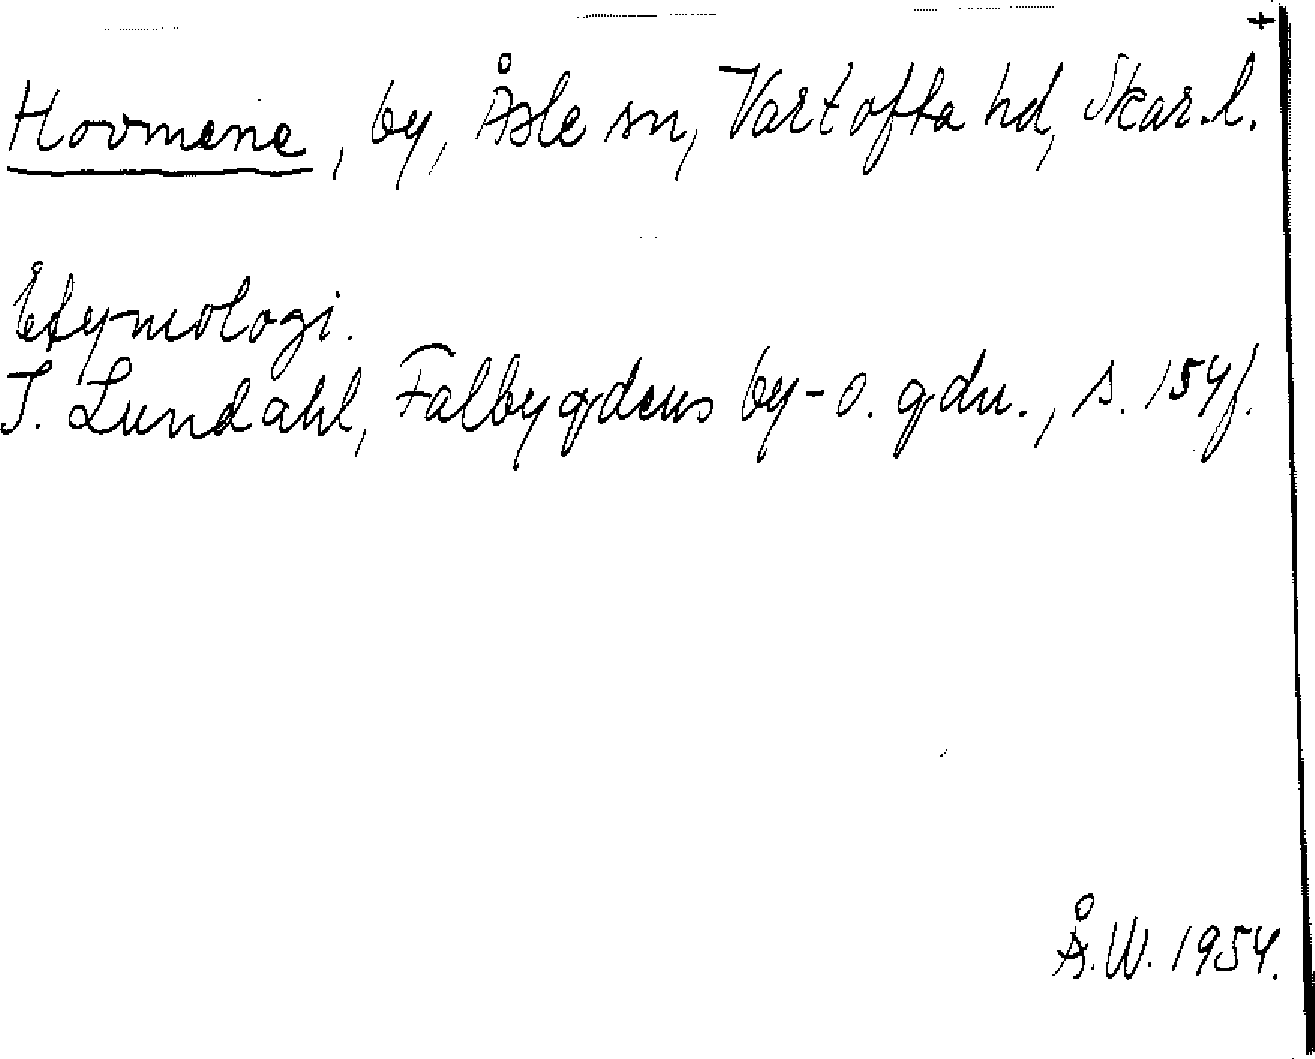 +
Hovmene, by, Åsle sn, Vartofta hd, Skar.l.
Etymologi.
I. Lundahl, Falbygdens by- o. gdn., s. 154f.
Å.W. 1954.